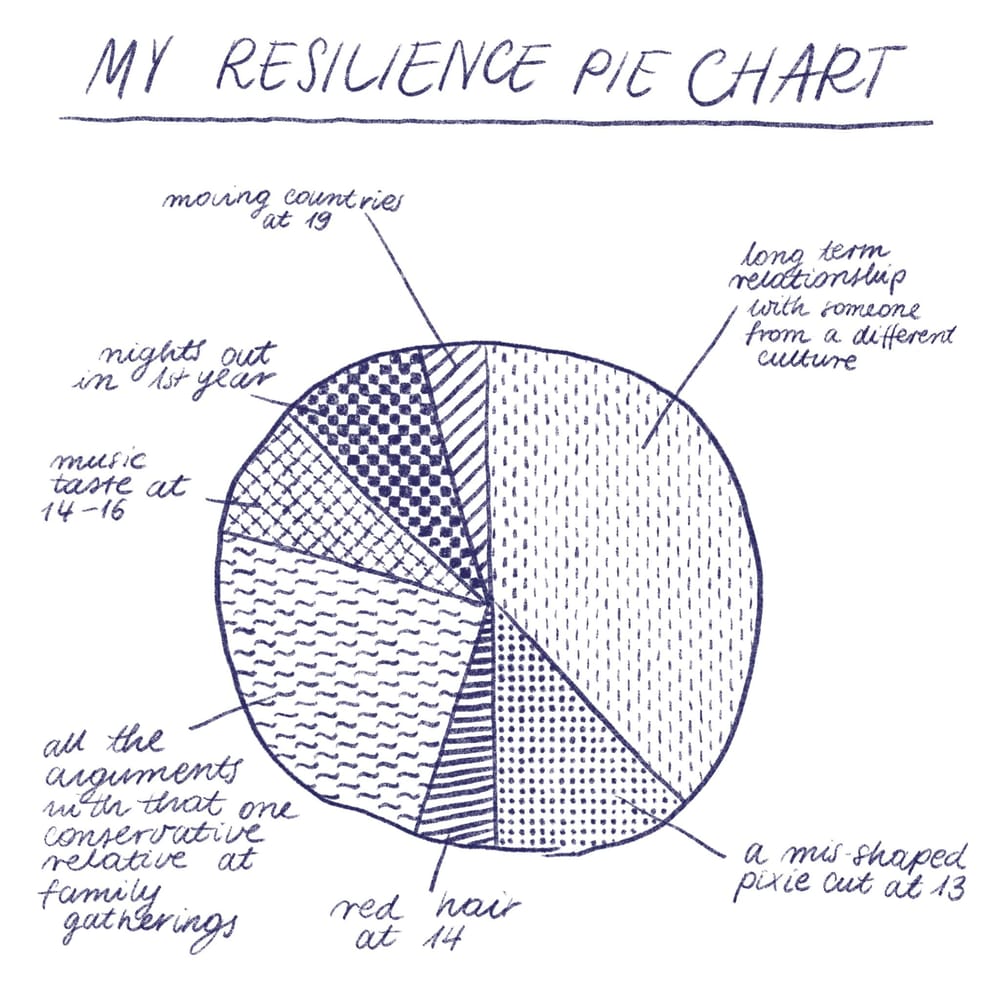 MY RESILIENCE PIE CHART
moving countries
at 19
long term
relationship
with someone
from a different
culture
nights out
in 1st year
music
taste at
14-16
all the
arguments
with that one
conservative
relative at
family
gatherings
red hair
at 14
a mis-shaped
pixie cut at 13